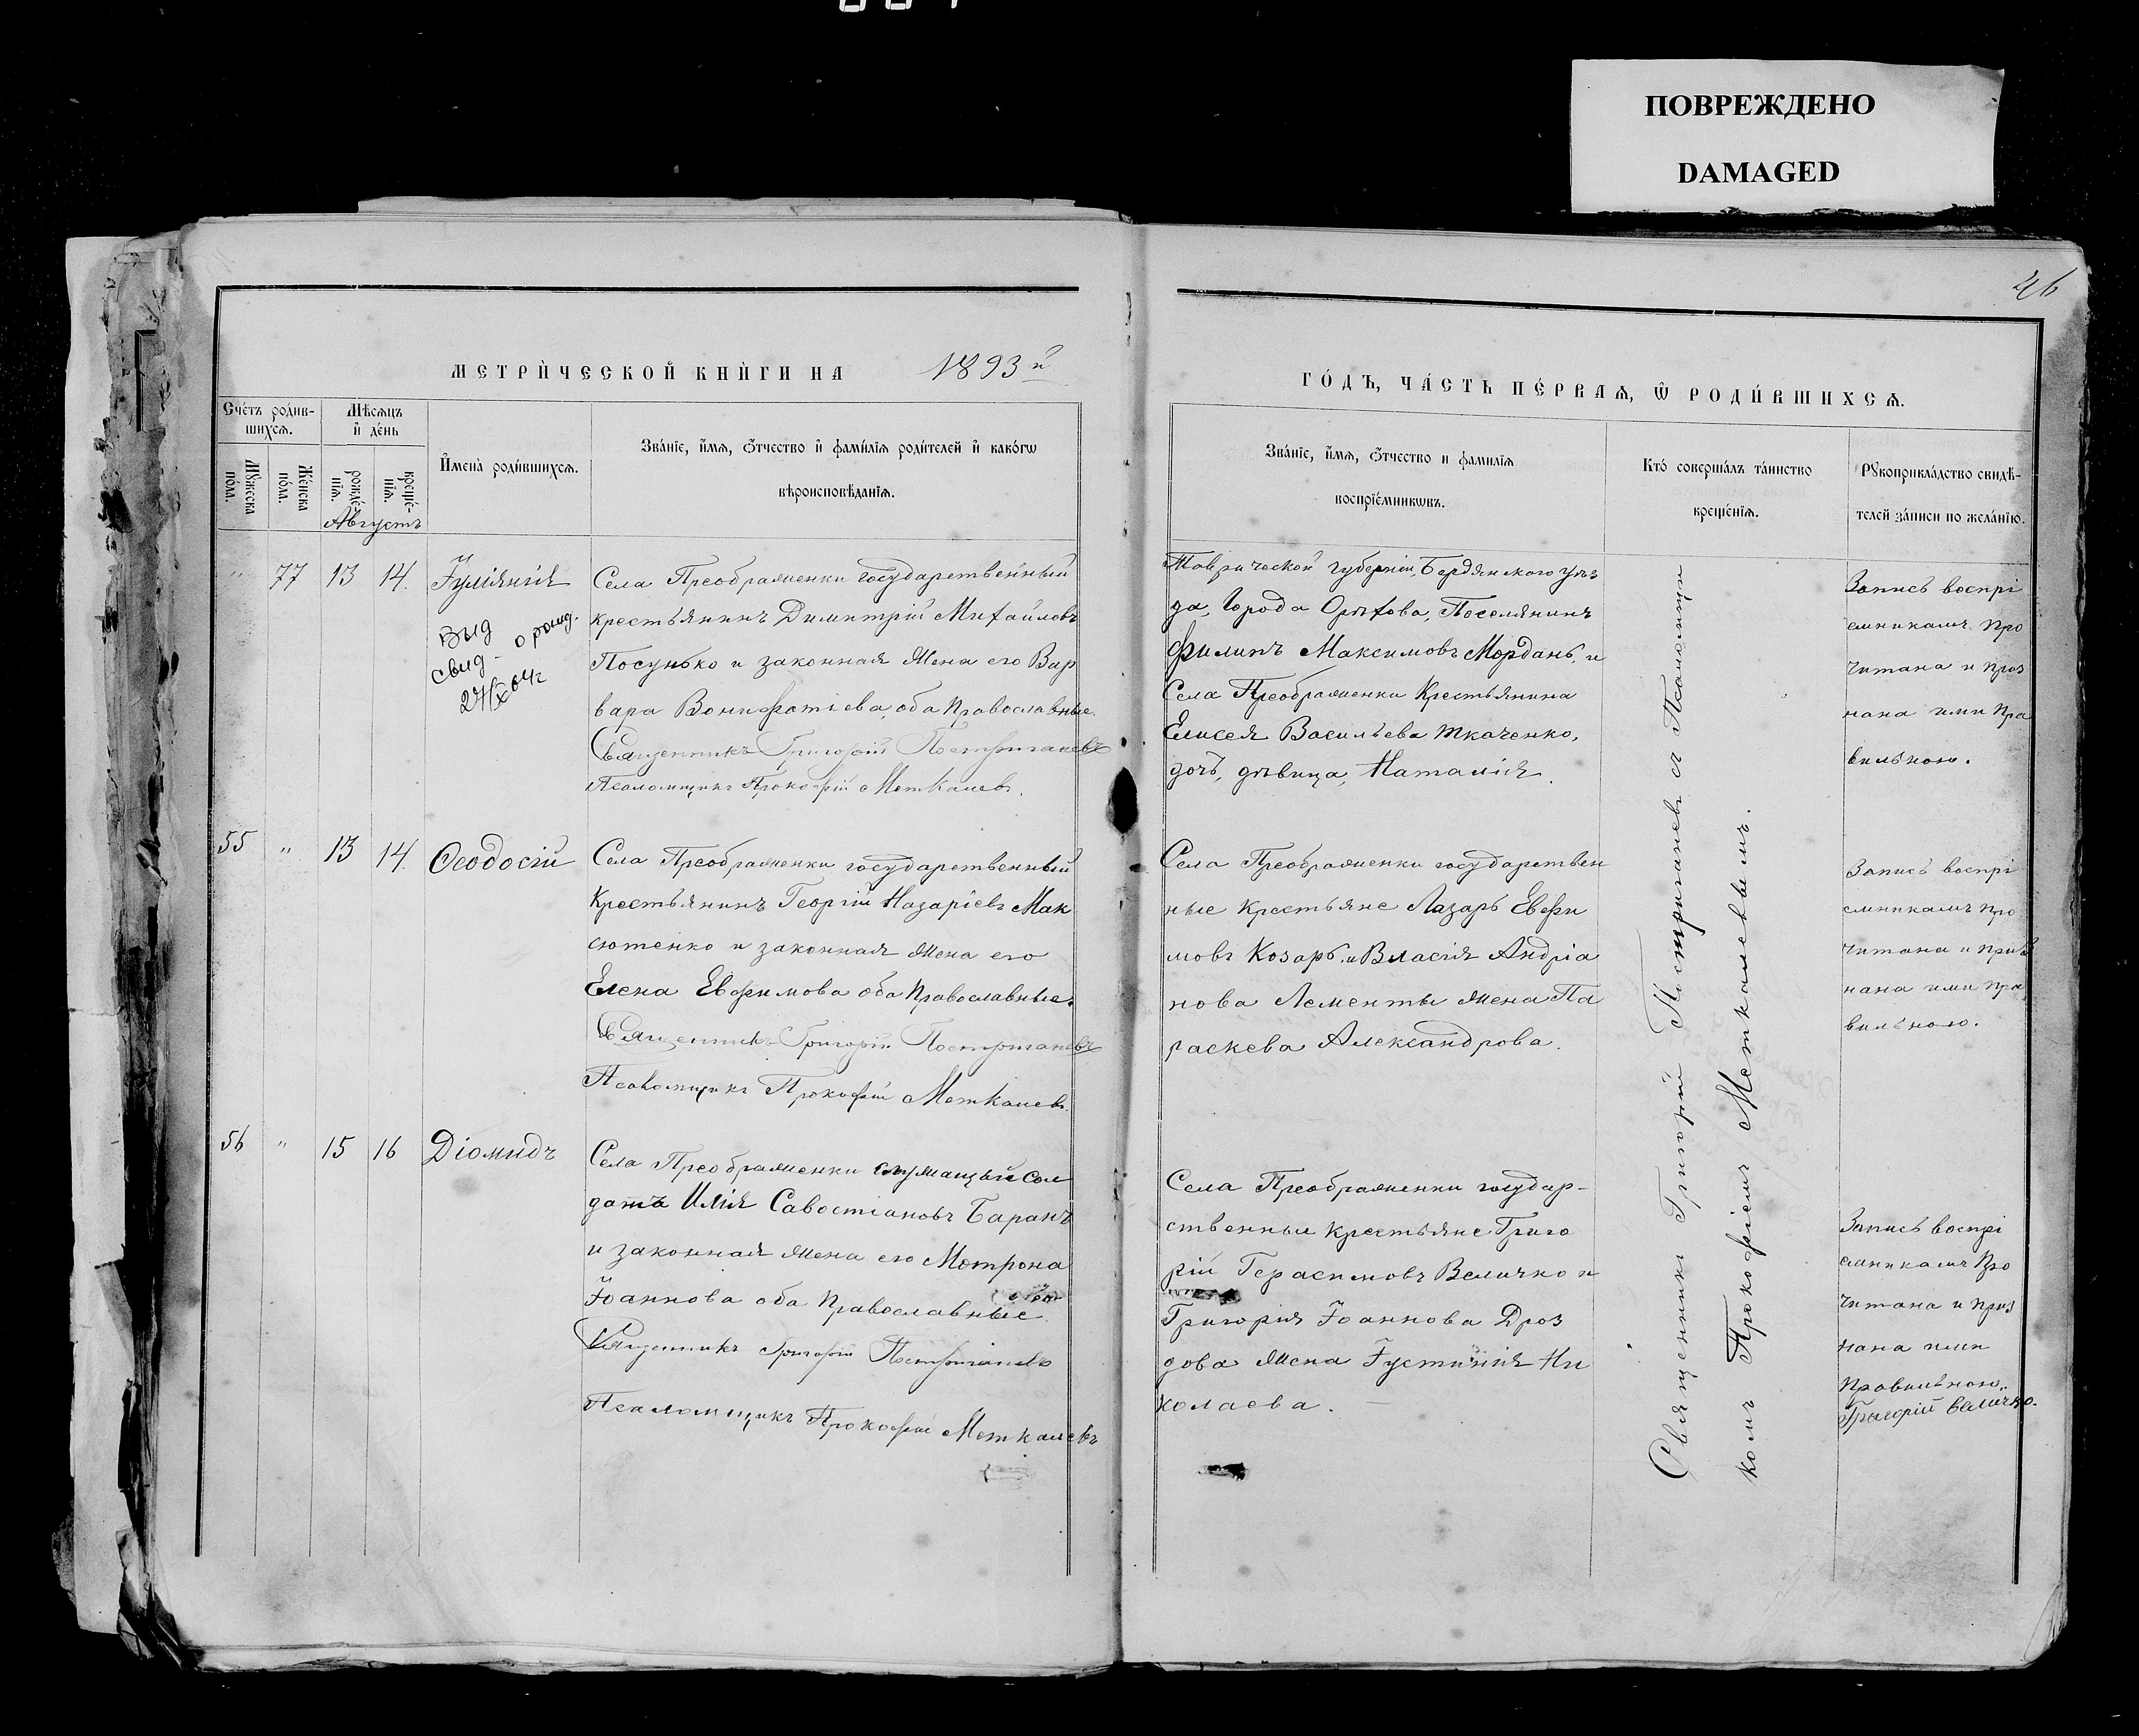 ПОВРЕЖДЕНО
DAMAGED
46
МЕТРИ́ЧЕСКОЙ КНИ́ГИ НА 1893й
ГО́ДЪ, ЧА́СТЬ ПЕ́РВАѦ, Ѡ РОДИ́ВШИХСѦ.
Сче́тъ роди́в-
шихсѧ.
Мѣ́сѧцъ
и҆ де́нь
И҆мена̀ роди́вшихсѧ.
Зва́нїе, и҆́мѧ, ѻ҆́тчество и҆ фами́лїѧ роди́телей и҆ како́гѡ
вѣроисповѣ́данїѧ.
Мꙋ́жеска
по́ла.
Же́нска
по́ла.
рожде́-
нїѧ.
креще́-
нїѧ.
Августъ
Зва́нїе, и҆́мѧ, ѻ҆́тчество и фами́лїѧ
воспрїе́мникѡвъ.
Кто́ соверша́лъ та́инство
креще́нїѧ.
Рꙋкоприкла́дство свидѣ́-
телей за́писи по жела́нїю.
" 77 13 14. Іуліанія
Выд
свид. о рожд.
24/X 04г
Села Преображенки государственный
крестьянинъ Димитрій Михайловъ
Посунько и законная жена его Вар
вара Вонифатіева, оба Православные.
Священникъ Григорій Постригачевъ
Псаломщикъ Прокофій Меткалевъ.
Таврической губерніи, Бердянского уѣз
да, Города Орѣхова, Поселянинъ
Филипъ Максимовъ Морданъ, и
Села Преображенки Крестьянина
Елисея Васильева Ткаченко,
дочь, дѣвица, Наталія.
Запись воспрі
емникамъ про
читана и приз
нана ими пра
вильною.
55 " 13 14. Ѳеодосій
Села Преображенки государственный
Крестьянинъ Георгій Назаріевъ Мак
сютенко и законная жена его
Елена Евфимова оба Православные.
Священникъ Григорій Постригачевъ
Псаломщикъ Прокофій Меткалевъ.
Села Преображенки государствен
ные крестьяне Лазарь Евфи
мовъ Козарь и Власія Андріа
нова Лементы жена Па
раскева Александрова.
Запись воспрі
емникамъ про
читана и приз
нана ими пра
вильною.
56 " 15 16 Діомидъ
Села Преображенки служащій сол
датъ Илія Савостіановъ Баранъ
и законная жена его Мотрона
Іоаннова оба Православные.
Священникъ Григорій Постригачевъ
Псаломщикъ Прокофій Меткалевъ
Села Преображенки государ-
ственные крестьяне Григо
рій Герасимовъ Величко и
Григорія Іоаннова Дроз
дова жена Іустинія Ни
колаева. —
Запись воспрі
емникамъ Про
читана и приз
нана ими
Правильною.
Григорій Величко.
Священникъ Григорій Постригачевъ съ Псаломщи
комъ Прокофіемъ Меткалевымъ.